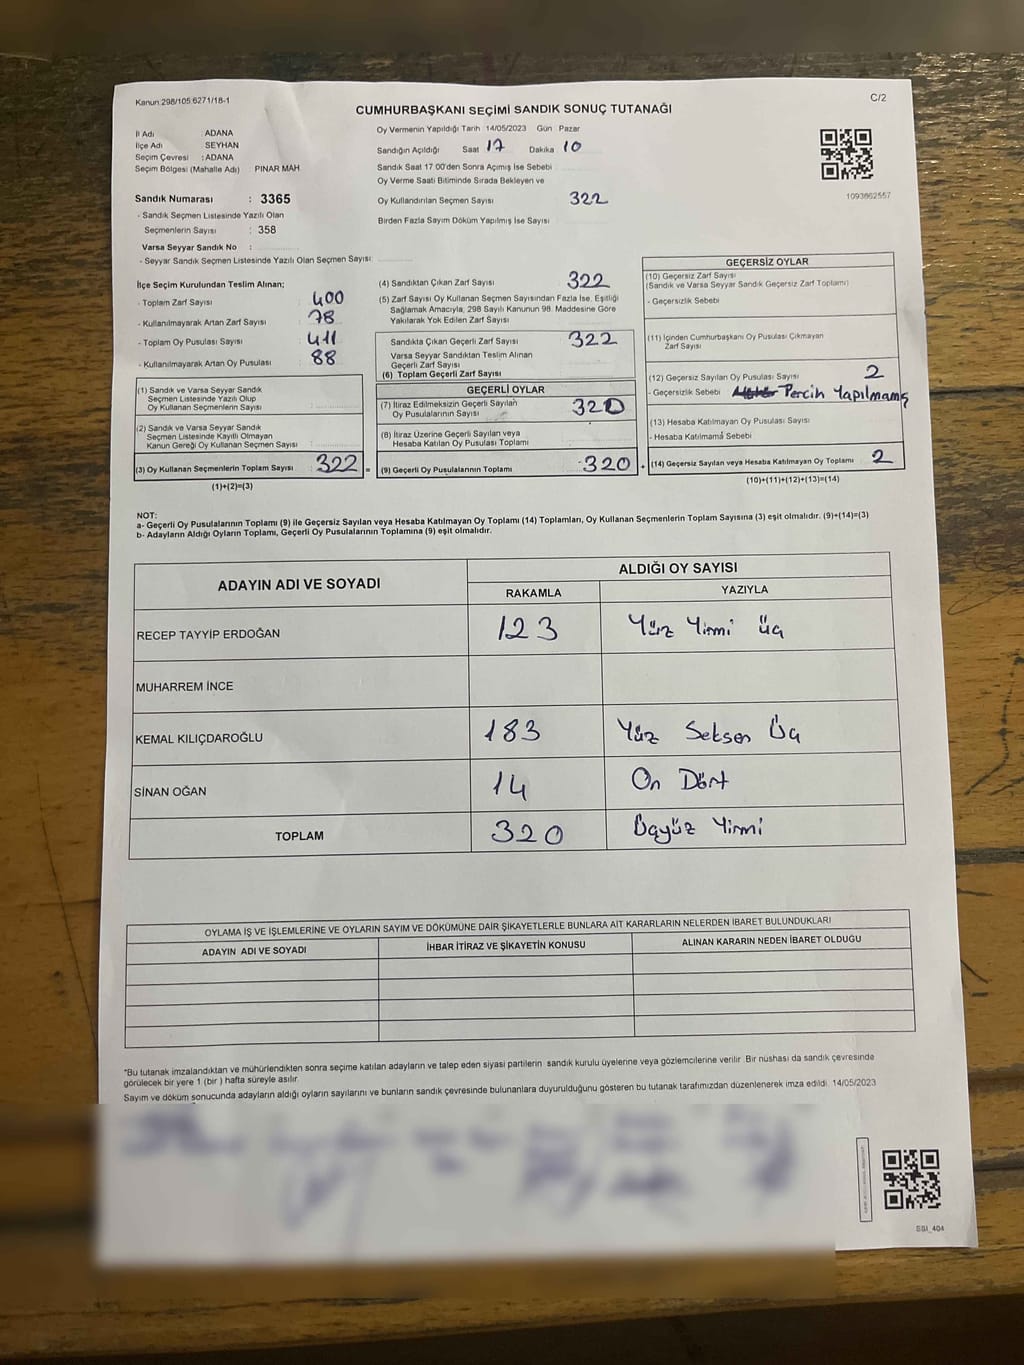 Kanun 298/105 6271/18-1
C/2
CUMHURBAŞKANI SEÇİMİ SANDIK SONUÇ TUTANAĞI
İl Adı : ADANA
İlçe Adı : SEYHAN
Seçim Çevresi : ADANA
Seçim Bölgesi (Mahalle Adı) PINAR MAH
Sandık Numarası : 3365
- Sandık Seçmen Listesinde Yazılı Olan
Seçmenlerin Sayısı : 358
Varsa Seyyar Sandık No :
- Seyyar Sandık Seçmen Listesinde Yazılı Olan Seçmen Sayısı:
Oy Vermenin Yapıldığı Tarih 14/05/2023 Gün Pazar
Sandığın Açıldığı Saat 17 Dakika 10
Sandık Saat 17 00'den Sonra Açımış İse Sebebi
Oy Verme Saati Bitiminde Sırada Bekleyen ve
Oy Kullandırılan Seçmen Sayısı 322
Birden Fazla Sayım Döküm Yapılmış İse Sayısı
1093862557
İlçe Seçim Kurulundan Teslim Alınan;
- Toplam Zarf Sayısı : 400
- Kullanılmayarak Artan Zarf Sayısı : 78
- Toplam Oy Pusulası Sayısı : 411
- Kullanılmayarak Artan Oy Pusulası : 88
(1) Sandık ve Varsa Seyyar Sandık
Seçmen Listesinde Yazılı Olup
Oy Kullanan Seçmenlerin Sayısı :
(2) Sandık ve Varsa Seyyar Sandık
Seçmen Listesinde Kayıtlı Olmayan
Kanun Gereği Oy Kullanan Seçmen Sayısı :
(3) Oy Kullanan Seçmenlerin Toplam Sayısı : 322 =
(1)+(2)=(3)
(4) Sandıktan Çıkan Zarf Sayısı 322
(5) Zarf Sayısı Oy Kullanan Seçmen Sayısından Fazla İse, Eşitliği
Sağlamak Amacıyla, 298 Sayılı Kanunun 98. Maddesine Göre
Yakılarak Yok Edilen Zarf Sayısı
Sandıkta Çıkan Geçerli Zarf Sayısı 322
Varsa Seyyar Sandıktan Teslim Alınan
Geçerli Zarf Sayısı
(6) Toplam Geçerli Zarf Sayısı
GEÇERLİ OYLAR
(7) İtiraz Edilmeksizin Geçerli Sayılan
Oy Pusulalarının Sayısı 320
(8) İtiraz Üzerine Geçerli Sayılan veya
Hesaba Katılan Oy Pusulası Toplamı
(9) Geçerli Oy Pusulalarının Toplamı 320 +
GEÇERSİZ OYLAR
(10) Geçersiz Zarf Sayısı
(Sandık ve Varsa Seyyar Sandık Geçersiz Zarf Toplamı)
- Geçersizlik Sebebi
(11) İçinden Cumhurbaşkanı Oy Pusulası Çıkmayan
Zarf Sayısı
(12) Geçersiz Sayılan Oy Pusulası Sayısı 2
- Geçersizlik Sebebi Percin Yapılmamış
(13) Hesaba Katılmayan Oy Pusulası Sayısı
- Hesaba Katılmama Sebebi
(14) Geçersiz Sayılan veya Hesaba Katılmayan Oy Toplamı 2
(10)+(11)+(12)+(13)=(14)
NOT:
a- Geçerli Oy Pusulalarının Toplamı (9) ile Geçersiz Sayılan veya Hesaba Katılmayan Oy Toplamı (14) Toplamları, Oy Kullanan Seçmenlerin Toplam Sayısına (3) eşit olmalıdır. (9)+(14)=(3)
b- Adayların Aldığı Oyların Toplamı, Geçerli Oy Pusulalarının Toplamına (9) eşit olmalıdır.
ADAYIN ADI VE SOYADI
ALDIĞI OY SAYISI
RAKAMLA YAZIYLA
RECEP TAYYİP ERDOĞAN 123 Yüz Yirmi üç
MUHARREM İNCE
KEMAL KILIÇDAROĞLU 183 Yüz Seksen Üç
SİNAN OĞAN 14 On Dört
TOPLAM 320 Üçyüz Yirmi
OYLAMA İŞ VE İŞLEMLERİNE VE OYLARIN SAYIM VE DÖKÜMÜNE DAİR ŞİKAYETLERLE BUNLARA AİT KARARLARIN NELERDEN İBARET BULUNDUKLARI
ADAYIN ADI VE SOYADI İHBAR İTİRAZ VE ŞİKAYETİN KONUSU ALINAN KARARIN NEDEN İBARET OLDUĞU
*Bu tutanak imzalandıktan ve mühürlendikten sonra seçime katılan adayların ve talep eden siyasi partilerin sandık kurulu üyelerine veya gözlemcilerine verilir. Bir nüshası da sandık çevresinde
görülecek bir yere 1 (bir) hafta süreyle asılır.
Sayım ve döküm sonucunda adayların aldığı oyların sayılarını ve bunların sandık çevresinde bulunanlara duyurulduğunu gösteren bu tutanak tarafımızdan düzenlenerek imza edildi. 14/05/2023